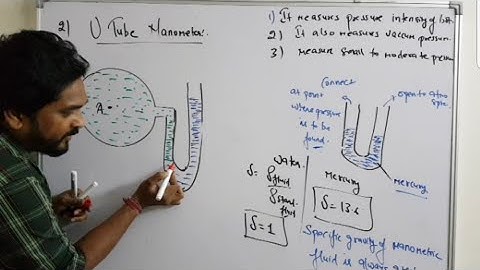 2) U Tube Manometer.
1) It measures pressure intensity of
2) It also measures vaccum pressure.
3) measure small to moderate pressure
A
Connect
at point
where pressure
is to be
found.
open to atmo
sphe.
Mercury
water
S = ρfluid
ρstand.
fluid
S = 1
Mercury
S = 13.6
Specific gravity of manometric
fluid is always